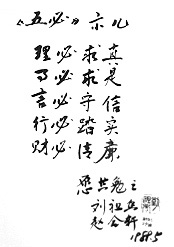 《五必》示儿
理必求真
事必求是
言必守信
行必踏实
财必清廉
愿共勉之
刘祖
赵
1989.5